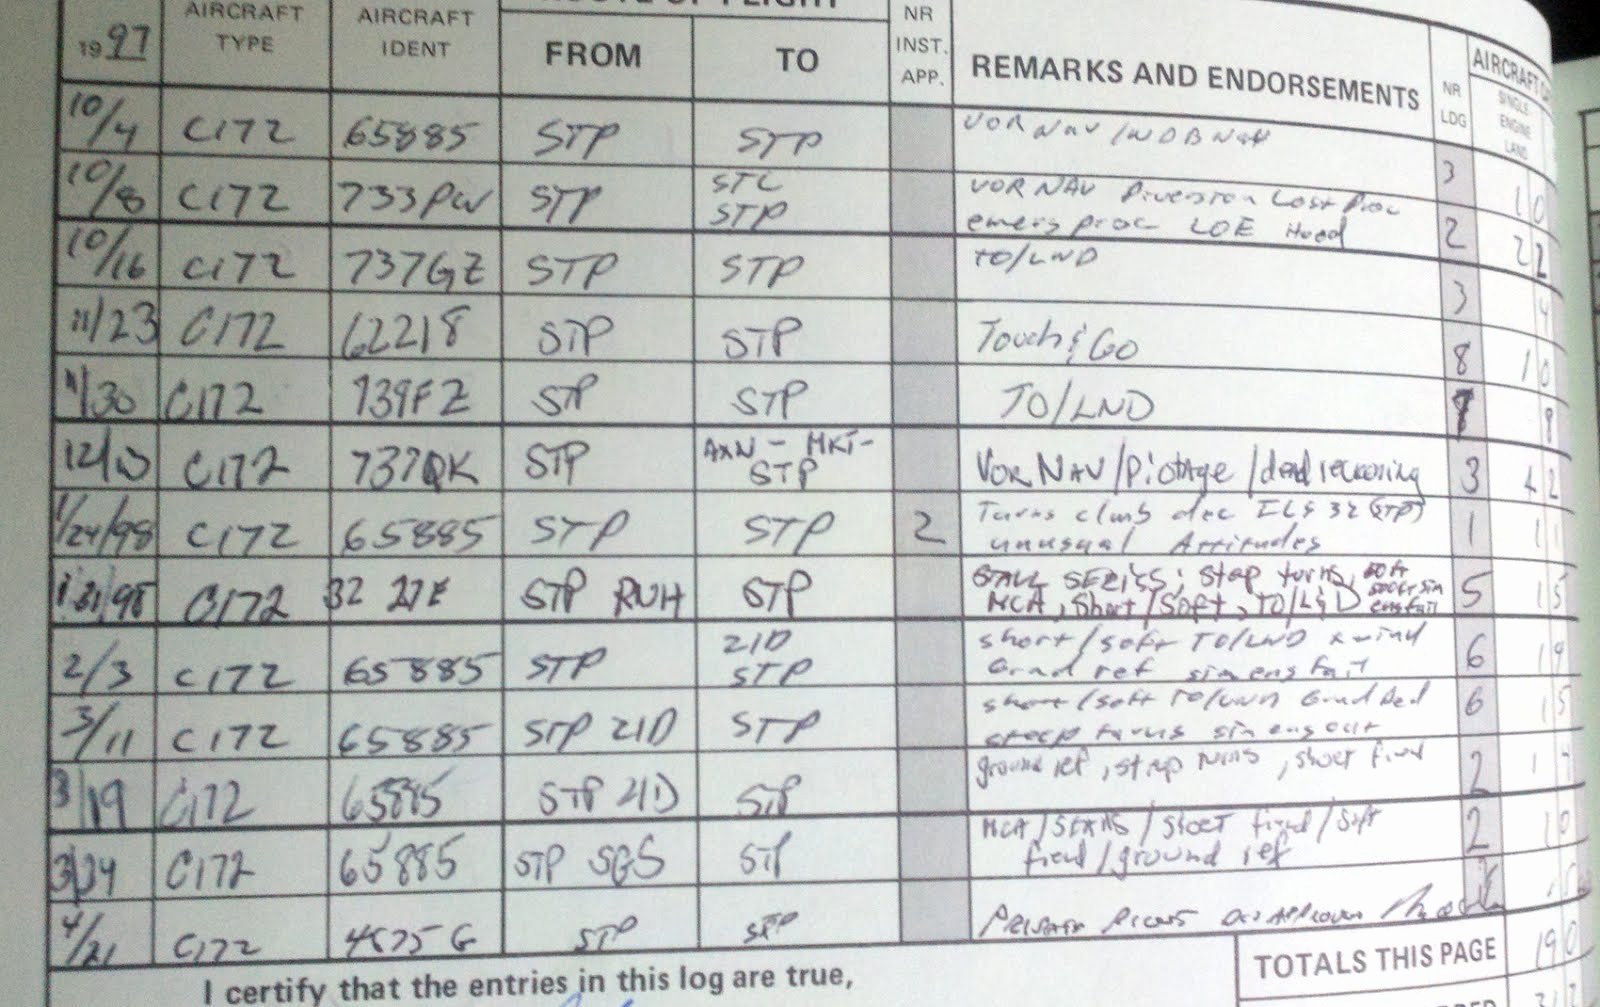 ROUTE OF FLIGHT
1997 AIRCRAFT TYPE AIRCRAFT IDENT FROM TO NR INST. APP. REMARKS AND ENDORSEMENTS NR LDG AIRCRAFT
SINGLE ENGINE LAND
10/4 C172 65885 STP STP VOR Nav / NDB Nav 3 1 0
10/8 C172 733PW STP STC STP VOR NAV Diversion Lost Proc
emerg proc LOE Hood 2 2 2
10/16 C172 737GZ STP STP TO/LND 3 4
11/23 C172 62218 STP STP Touch & Go 8 1 0
11/30 C172 739FZ STP STP TO/LND 7 8
12/ C172 737QK STP AXN - MKT - STP VOR NAV/Pilotage/dead reckoning 3 4 2
1/24/98 C172 65885 STP STP 2 Turns climb dec ILS 32 (STP)
unusual Attitudes 1 1 1
1/31/98 C172 STP RNH STP STALL SERIES, Steep turns,
MCA, Short/Soft, TO/L&D eng fail 5 1 5
2/3 C172 65885 STP 21D STP short/soft TO/LND x wind
Grnd ref sim eng fail 6 1 9
3/11 C172 65885 STP 21D STP short/soft TO/LND
steep turns sim eng out 6 1 5
3/19 C172 65885 STP 21D STP ground ref, steep turns, short field 2 1 4
3/24 C172 65885 STP SGS STP MCA/Stalls/short field/soft
field/ground ref 2 1 0
4/21 C172 STP STP Private
TOTALS THIS PAGE 19 0
I certify that the entries in this log are true,